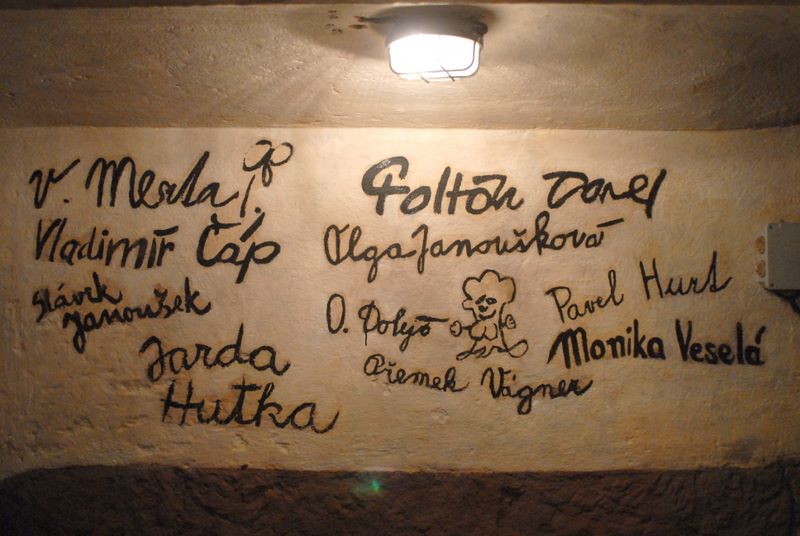 V. Merta
Vladimír Čáp
Slávek
Janoušek
Jarda
Hutka
Olga Janoušková
O.
Pavel Hurt
Monika Veselá
Přemek Vágner